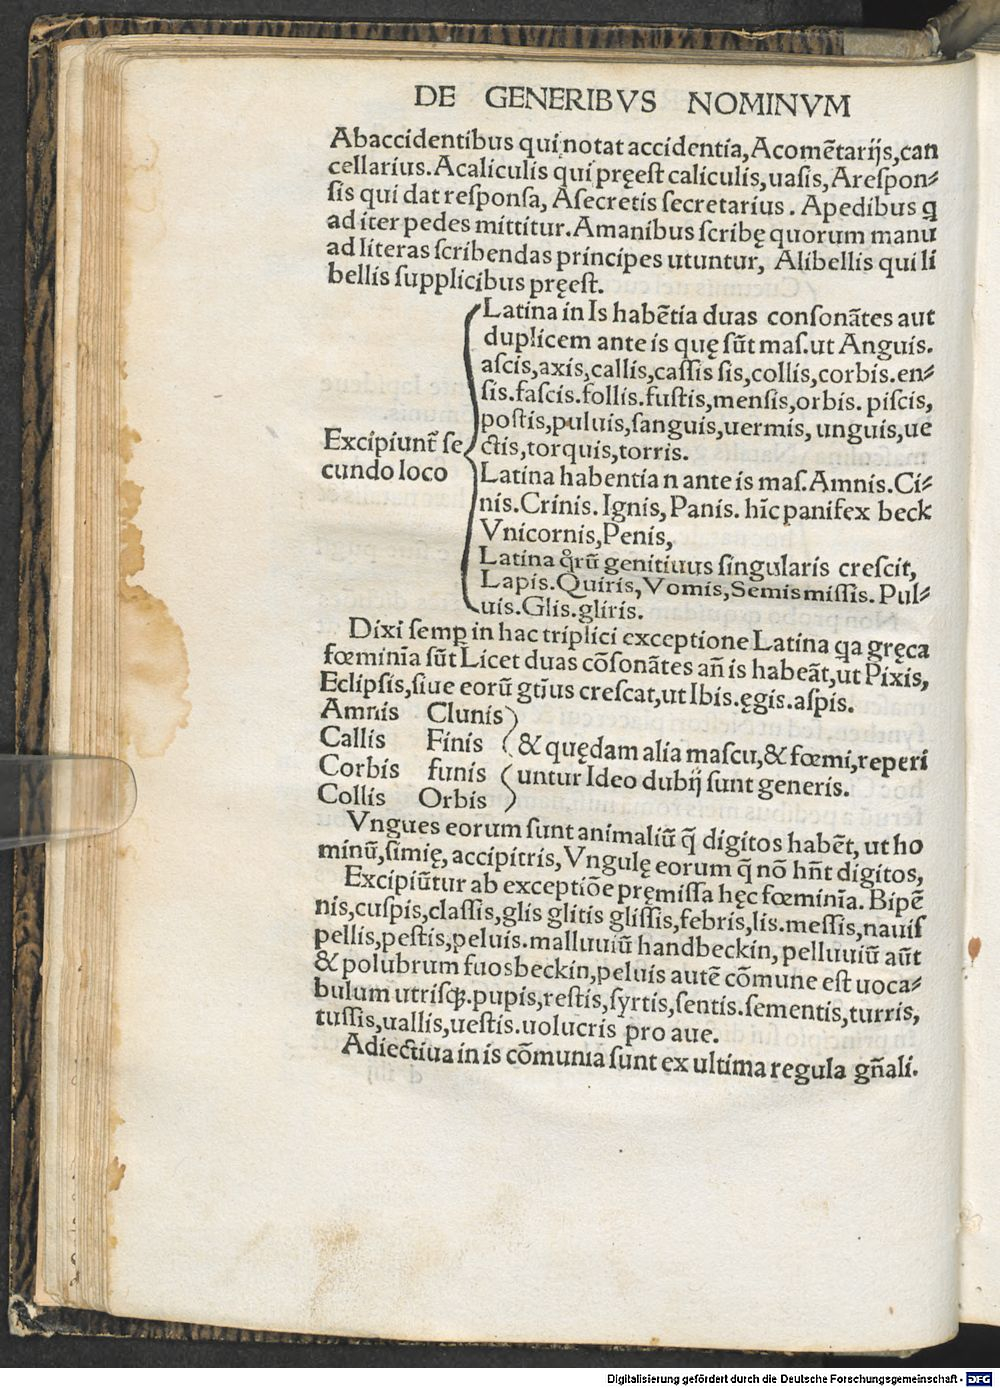 DE GENERIBVS NOMINVM
Abaccidentibus qui notat accidentia, Acomētarijs, can
cellarius. Acaliculis qui pręest caliculis, uasis, Arespon⸗
sis qui dat responsa, Asecretis secretarius. Apedibus q
ad iter pedes mittitur. Amanibus scribę quorum manu
ad literas scribendas principes utuntur, Alibellis qui li
bellis supplicibus pręest.
Latina in Is habētia duas consonātes aut
duplicem ante is quę sūt mas. ut Anguis.
ascis, axis, callis, cassis sis, collis, corbis. en⸗
sis. fascis. follis. fustis, mensis, orbis. piscis,
postis, puluis, sanguis, uermis, unguis, ue
ctis, torquis, torris.
Excipiunt̃ se
cundo loco
Latina habentia n ante is mas. Amnis. Ci⸗
nis. Crinis. Ignis, Panis. hīc panifex beck
Vnicornis, Penis,
Latina qͦrū genitiuus singularis crescit,
Lapis. Quiris, Vomis, Semis missis. Pul⸗
uis. Glis. gliris.
Dixi semꝑ in hac triplici exceptione Latina qa gręca
fœminīa sūt Licet duas cōsonātes añ is habeāt, ut Pixis,
Eclipsis, siue eorū gtĩus crescat, ut Ibis. ęgis. aspis.
Amnis Clunis
Callis Finis
Corbis funis
Collis Orbis
& quędam alia mascu, & fœmi, reperi
untur Ideo dubij sunt generis.
Vngues eorum sunt animaliū q̄ digitos habēt, ut ho
minū, simię, accipitris, Vngulę eorum q̄ nō hñt digitos,
Excipiūtur ab exceptiōe pręmissa hęc fœminīa. Bipē
nis, cuspis, classis, glis glitis glissis, febris, lis. messis, nauis
pellis, pestis, peluis. malluuiū handbeckin, pelluuiū aūt
& polubrum fuosbeckin, peluis autē cōmune est uoca⸗
bulum utrisqꝫ. pupis, restis, syrtis, sentis. sementis, turris,
tussis, uallis, uestis. uolucris pro aue.
Adiectiua in is cōmunia sunt ex ultima regula gñali.
Digitalisierung gefördert durch die Deutsche Forschungsgemeinschaft - DFG